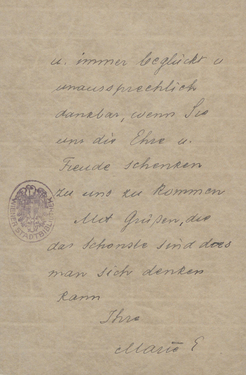 u. immer beglückt u
unaussprechlich
dankbar, wenn Sie
uns die Ehre u.
Freude schenken
zu uns zu kommen
Mit Grüßen, die
das Schönste sind das
man sich denken
kann
Ihre
Marie E